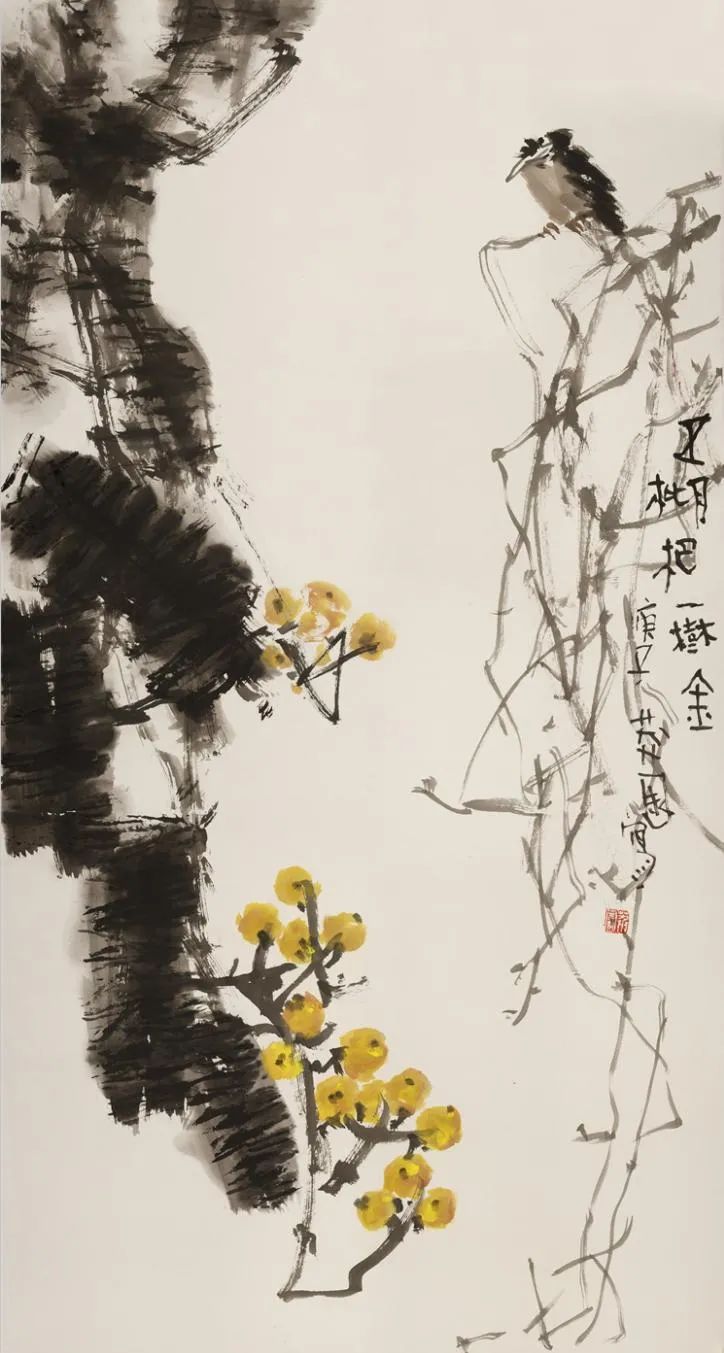 五月枇杷一樹金
庚子 寫